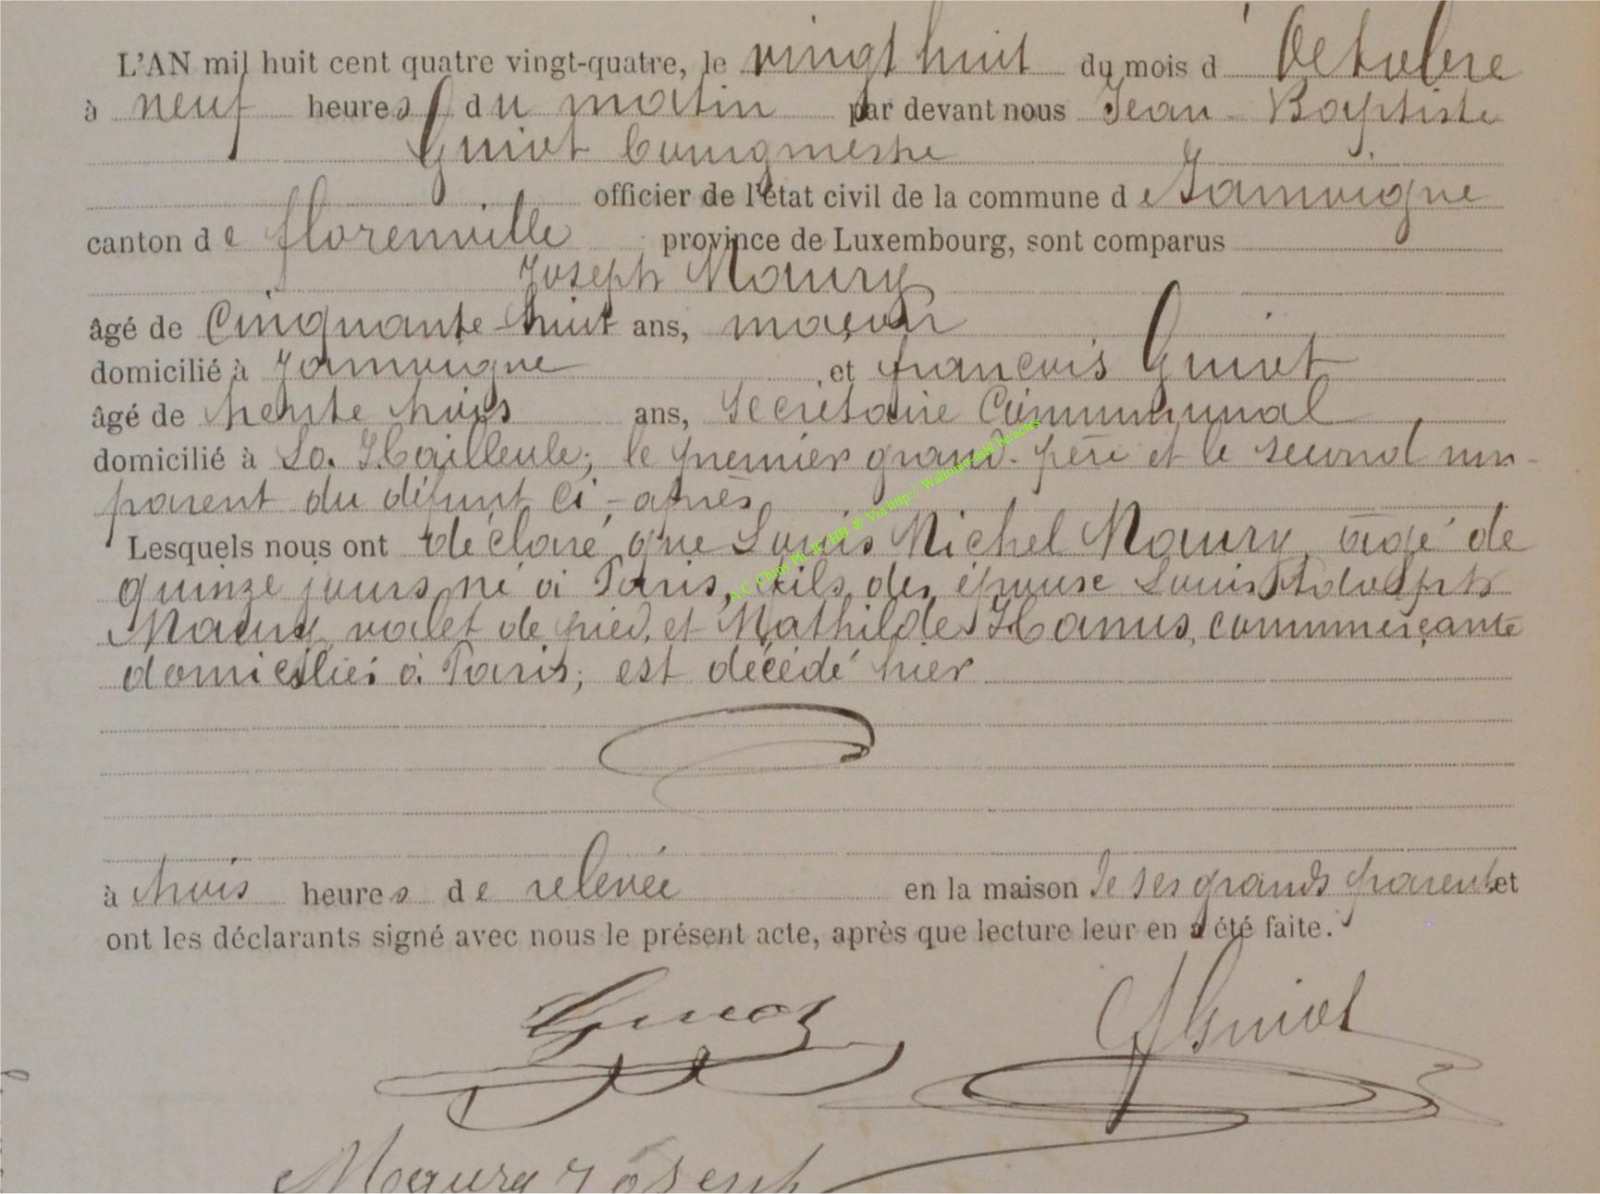 L'AN mil huit cent quatre vingt-quatre, le vingt huit du mois d' Octobre
à neuf heures du matin par devant nous Jean Baptiste
Guiot bourgmestre
officier de l'état civil de la commune de Jamoigne
canton de florenville province de Luxembourg, sont comparus
Joseph Maury
âgé de Cinquante-huit ans, maçon
domicilié à Jamoigne et françois Guiot
âgé de trente trois ans, Secrétaire Communal
domicilié à La Hailleule; le premier grand-père et le second un
parent du défunt ci-après
Lesquels nous ont déclaré que Louis Michel Maury, âgé de
quinze jours né à Paris, fils des époux Louis Adolphe
Maury, valet de pied, et Mathilde Hanus, commerçante
domiciliés à Paris; est décédé hier
à trois heures de relevée en la maison de ses grands parents et
ont les déclarants signé avec nous le présent acte, après que lecture leur en a été faite.
Guiot F Guiot
Maury Joseph